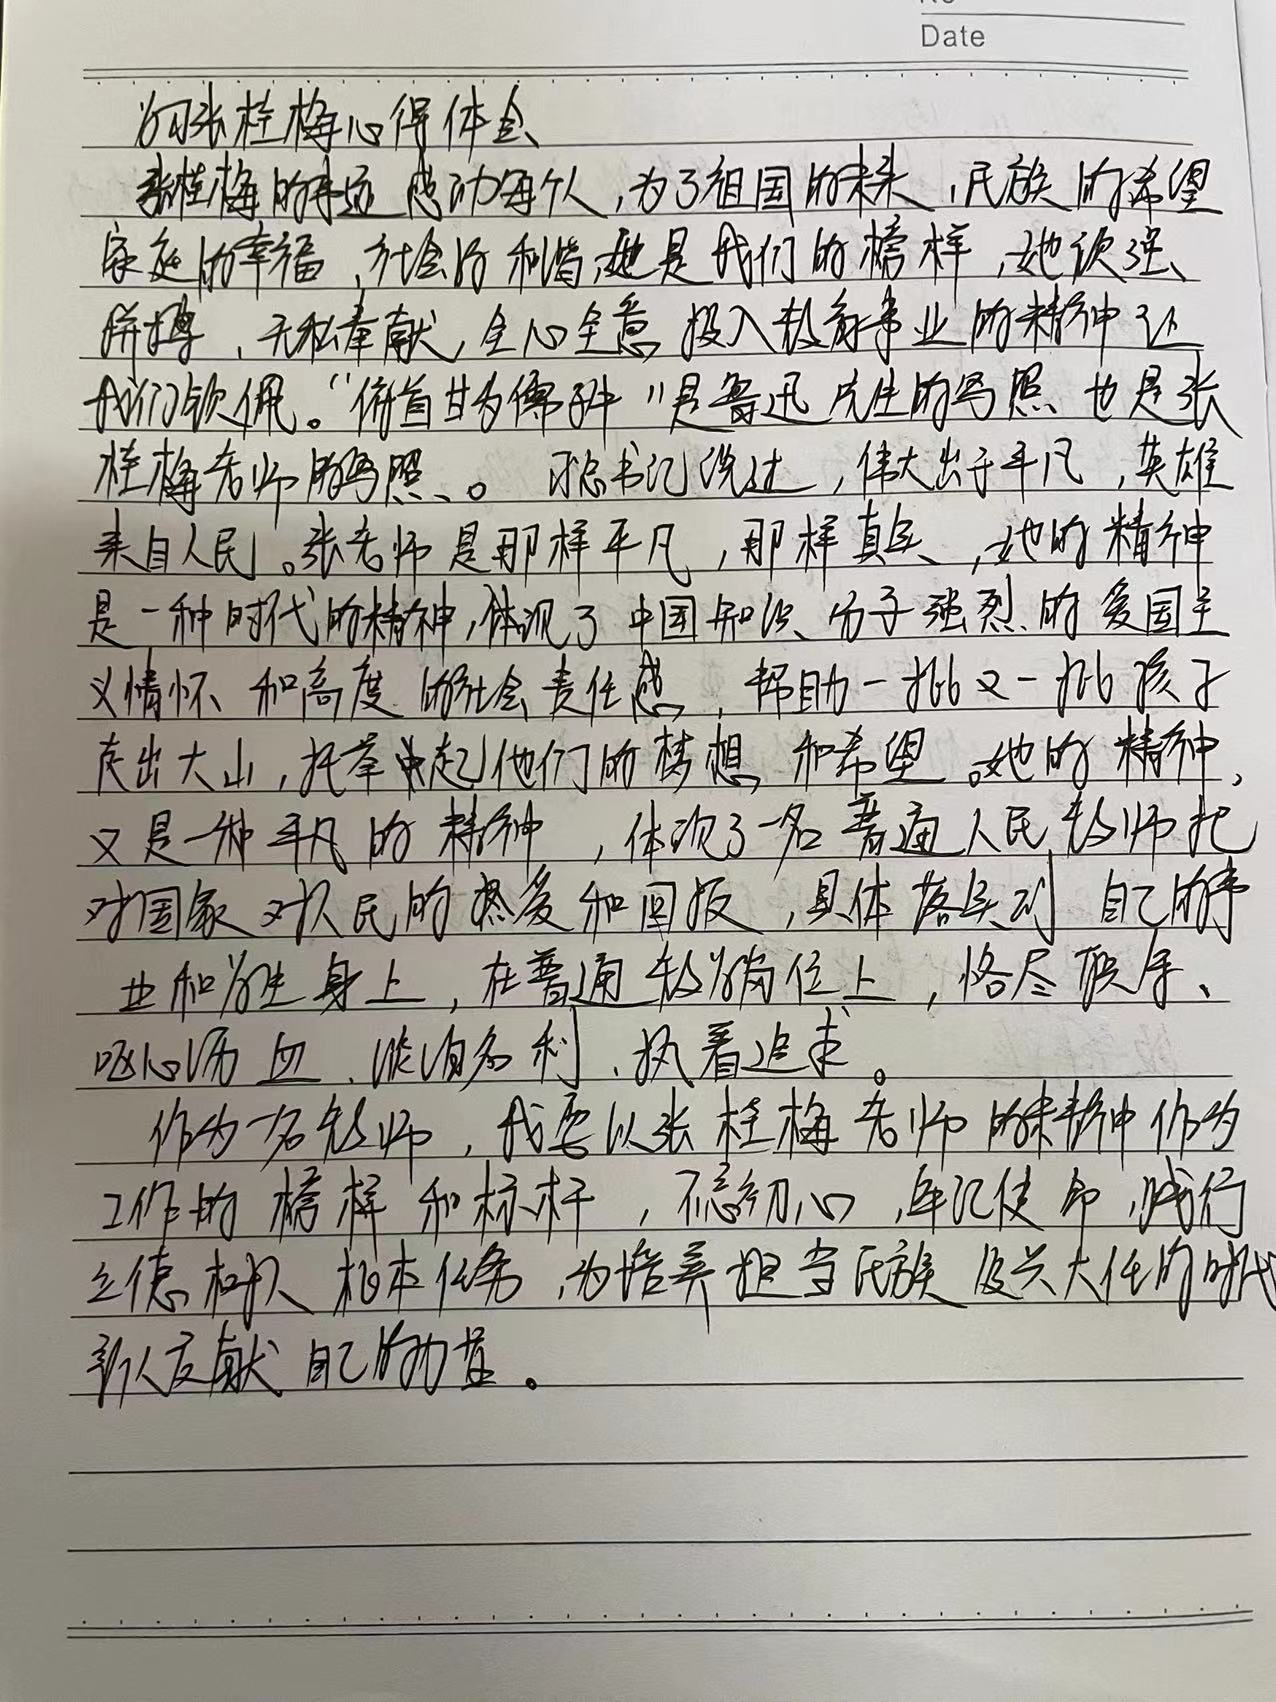 Date
学习张桂梅心得体会
张桂梅的事迹感动每个人,为了祖国的未来,民族的希望
家庭的幸福,社会的和谐,她是我们的榜样,她顽强、
拼搏、无私奉献,全心全意投入教育事业的精神让
我们钦佩。“俯首甘为孺子牛”是鲁迅先生的写照也是张
桂梅老师的写照。 习总书记说过,伟大出于平凡,英雄
来自人民。张老师是那样平凡,那样真实,她的精神
是一种时代的精神,体现了中国知识分子强烈的爱国主
义情怀和高度的社会责任感,帮助一批又一批孩子
走出大山,托举起他们的梦想和希望。她的精神,
又是一种平凡的精神,体现了一名普通人民教师把
对国家对人民的热爱和回报,具体落实到自己的事
业和学生身上,在普通教学岗位上,恪尽职守、
呕心沥血、淡泊名利、执着追求。
作为一名教师,我要以张桂梅老师的精神作为
工作的榜样和标杆,不忘初心,牢记使命,践行
立德树人根本任务,为培养担当民族复兴大任的时代
新人贡献自己的力量。